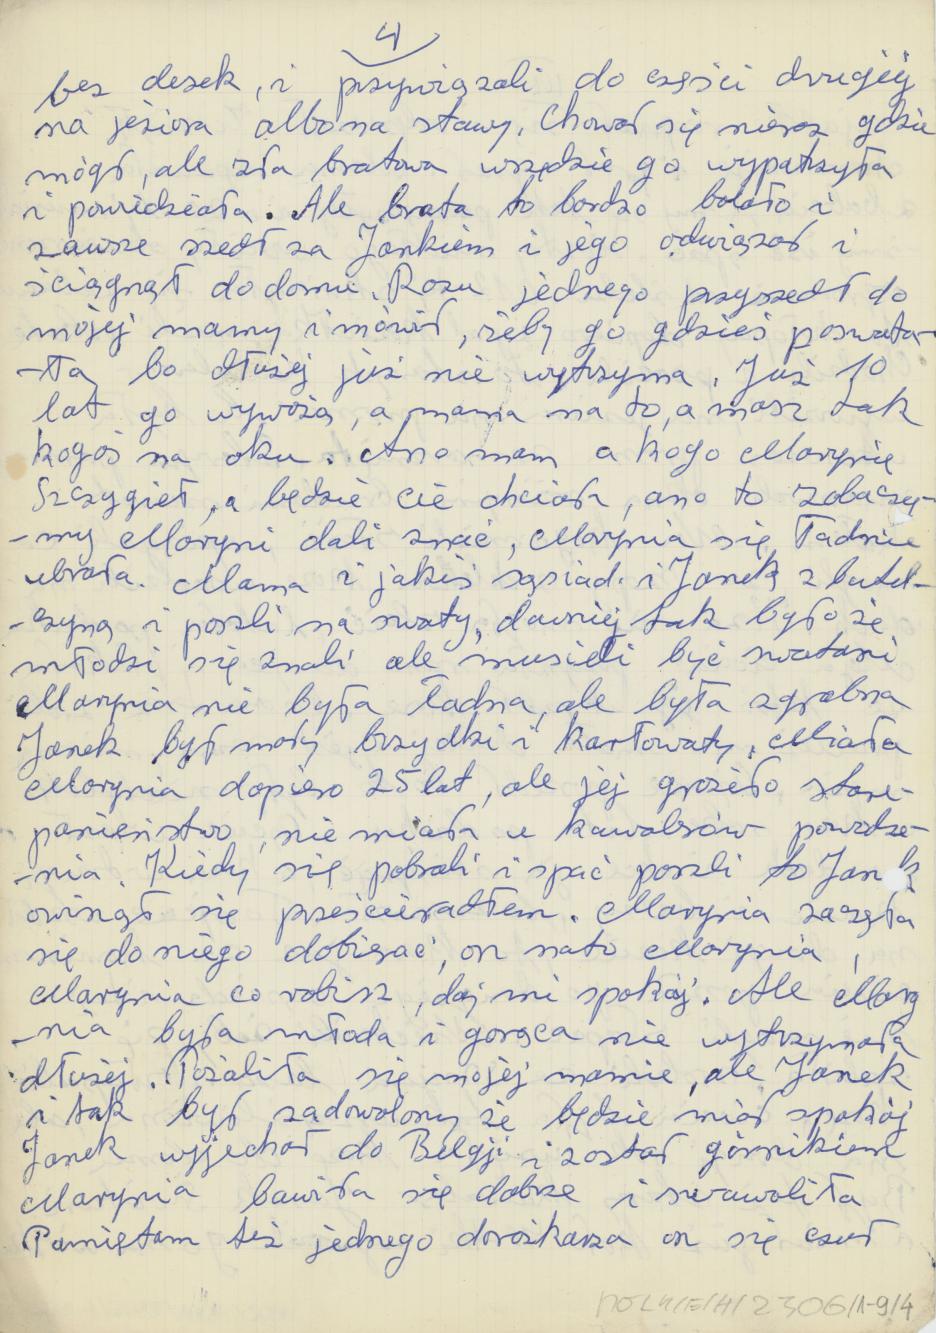 4
bez desek, i przywiązali do części drugiej
na jeziora albo na stawy. Chował się nieraz gdzie
mógł, ale zła bratowa wszędzie go wypatrzyła
i powiedziała. Ale brata to bardzo bolało i
zawsze szedł za Jankiem i jego odwiązał i
ściągnął do domu. Razu jednego przyszedł do
mojej mamy i mówił, żeby go gdzieś poswata-
-ła, bo dłużej już nie wytrzyma. Już 10
lat go wywożą, a mama na to, a masz tak
kogoś na oku. Ano mam a kogo Marynię
Szczygieł, a będzie cie chciała, ano to zobaczy-
-my Maryni dali znać, Marynia się ładnie
ubrała. Mama i jakiś sąsiad i Janek z butel-
-czyną i poszli na swaty, dawniej tak było że
młodzi się znali ale musieli być swatani
Marynia nie była ładna, ale była zgrabna
Janek był mały brzydki i karłowaty. Miała
Marynia dopiero 25 lat, ale jej groziło staro-
panieństwo, nie miała u kawalerów powodze-
-nia. Kiedy się pobrali i spać poszli to Janek
owinął się prześcieradłem. Marynia zaczęła
się do niego dobierać, on na to Marynia,
Marynia co robisz, daj mi spokój. Ale Mary
-nia była młoda i gorąca nie wytrzymała
dłużej. Pożaliła się mojej mamie, ale Janek
i tak był zadowolony że będzie miał spokój
Janek wyjechał do Belgji i został górnikiem
Marynia bawiła się dobrze i swawoliła
Pamiętam też jednego dorożkarza on się czuł
2306/1-9/4